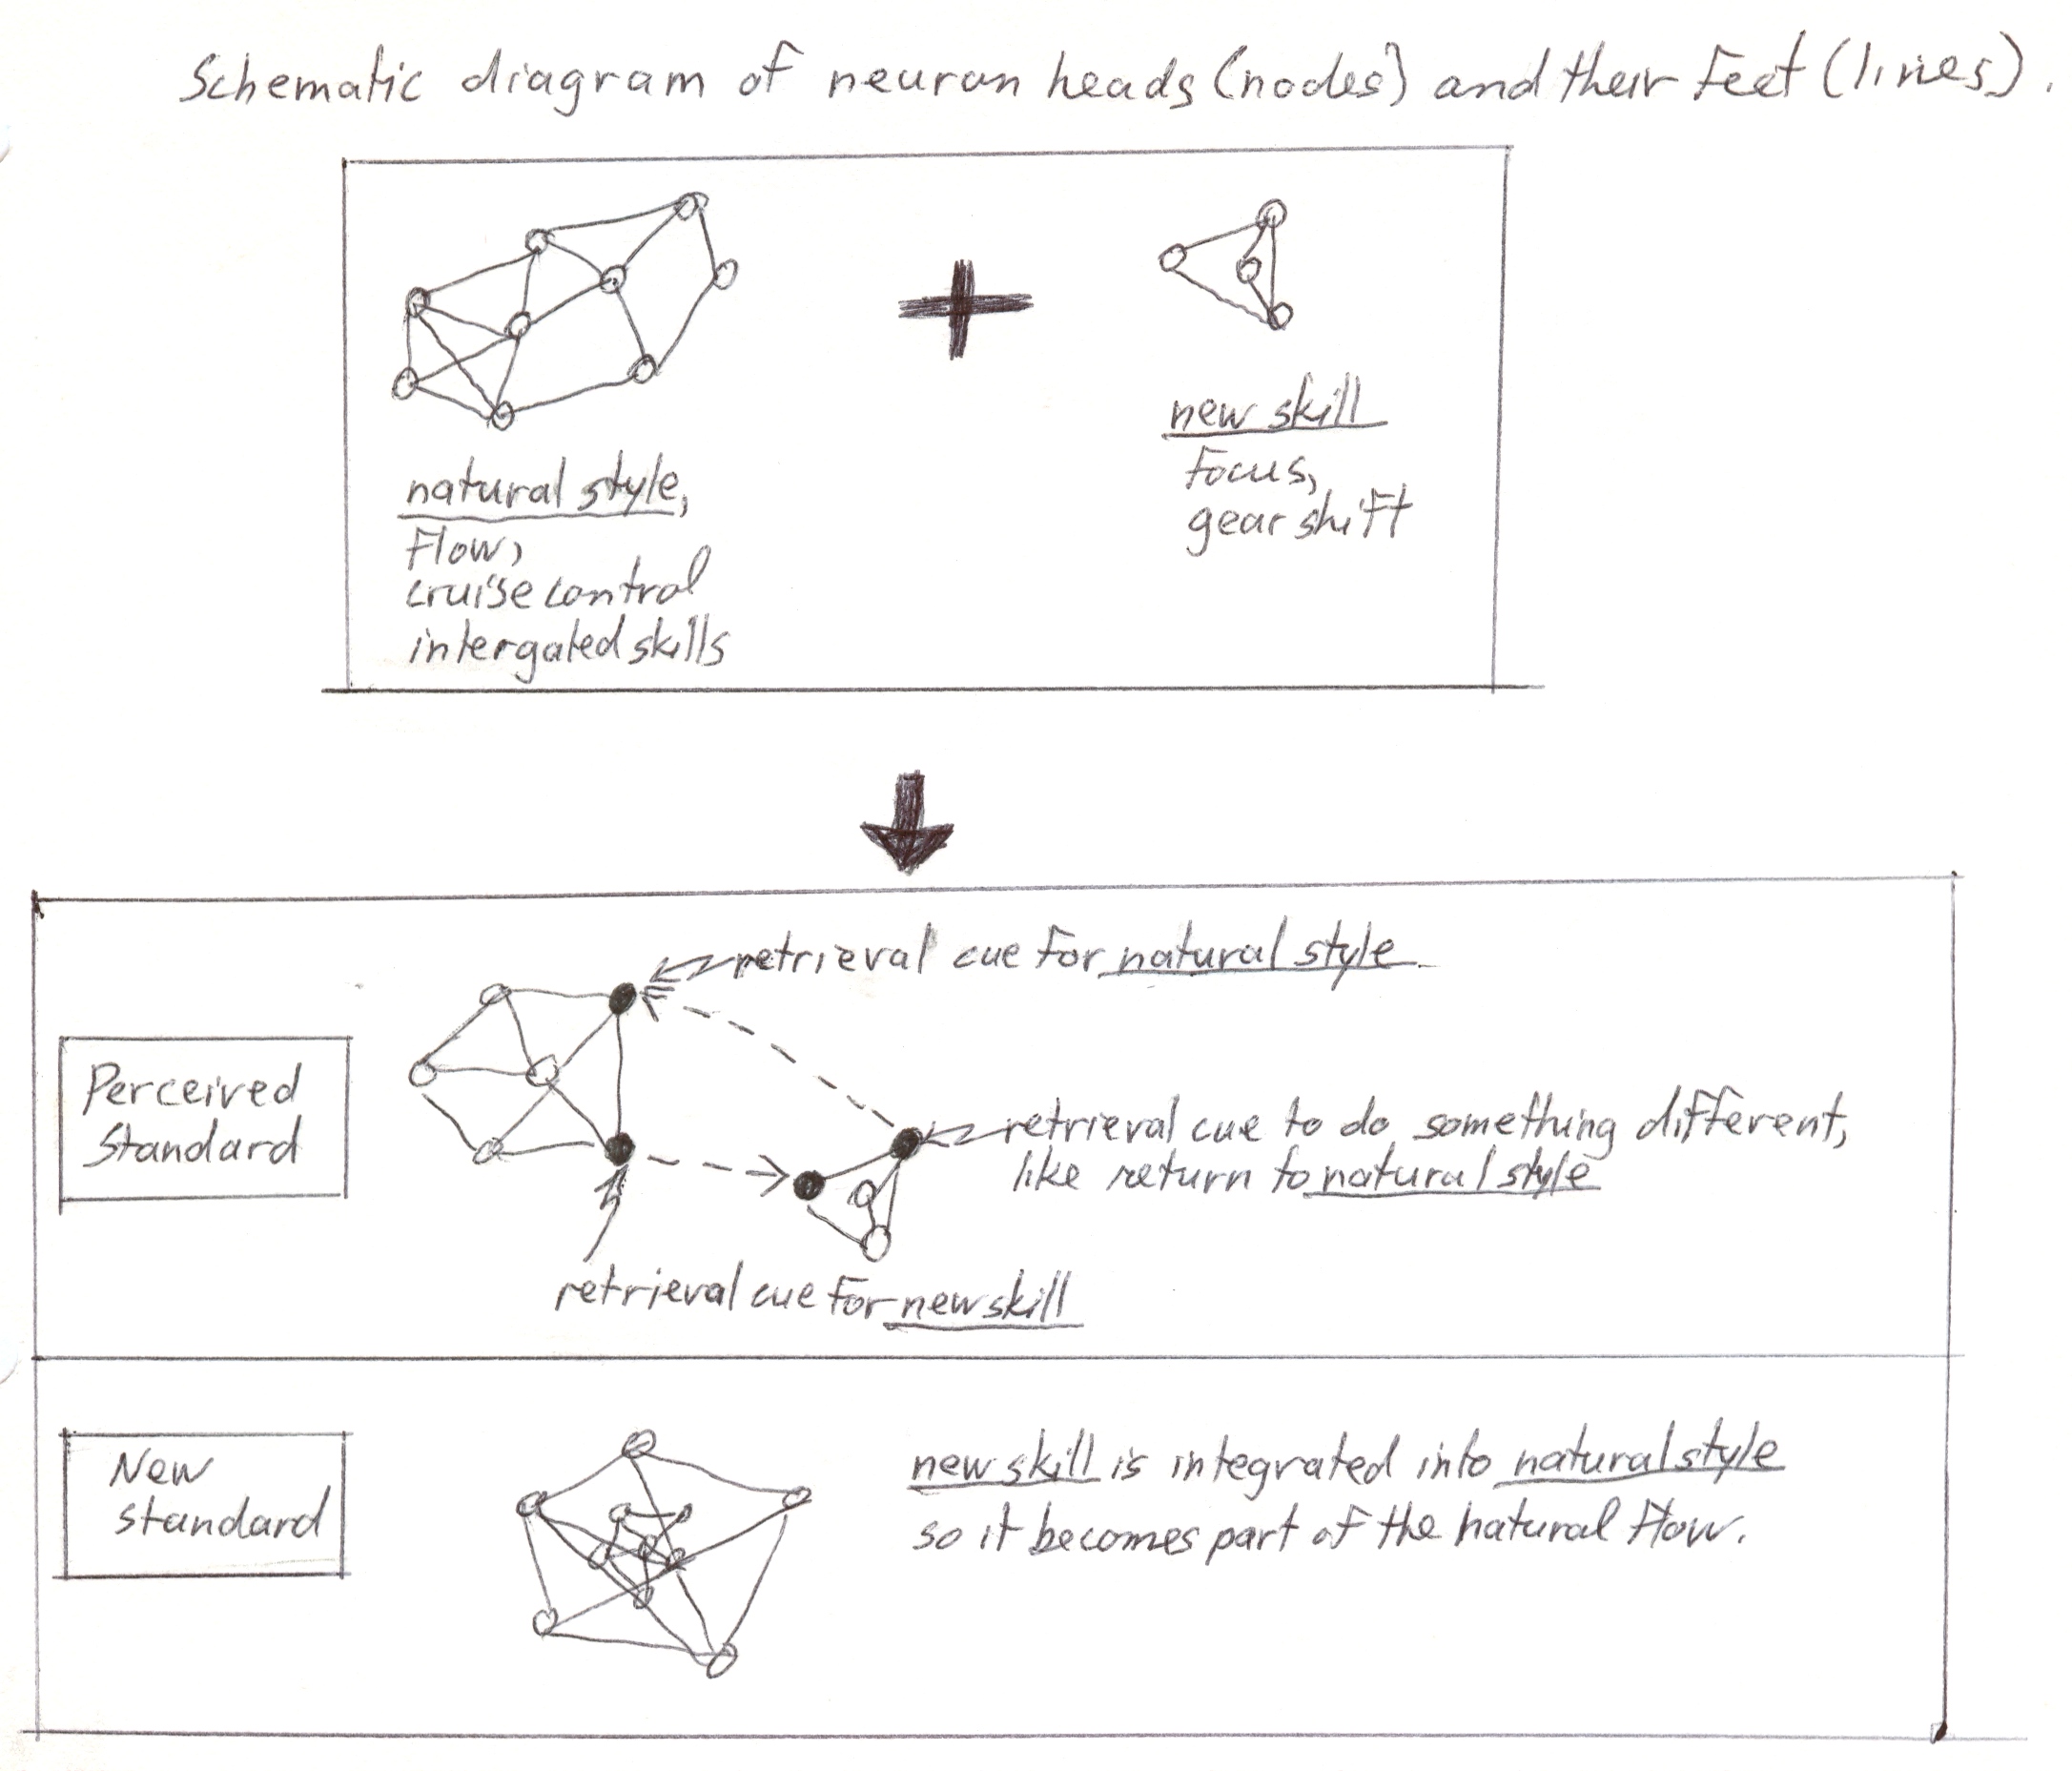 Schematic diagram of neuron heads (nodes) and their feet (lines).
natural style,
flow,
cruise control
intergated skills
new skill
focus,
gear shift
retrieval cue for natural style
Perceived
standard
retrieval cue to do something different,
like return to natural style
retrieval cue for new skill
New
standard
new skill is integrated into natural style
so it becomes part of the natural flow.